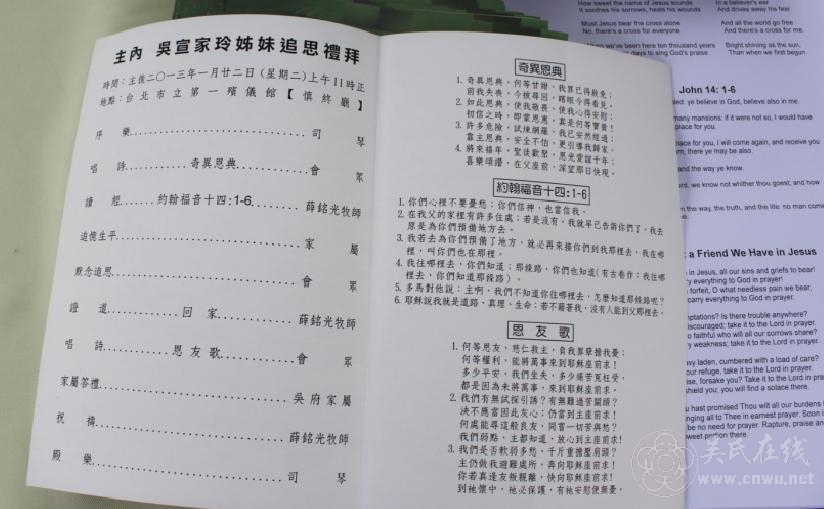 主內 吳宣家玲姊妹追思禮拜
時間：主後二〇一三年一月廿二日(星期二)上午11時正
地點：台北市立第一殯儀館【慎終廳】
序 樂……司 琴
唱 詩……奇異恩典……會 眾
讀 經……約翰福音十四:1-6……薛銘光牧師
追憶生平……家 屬
默念追思……會 眾
證 道……回 家……薛銘光牧師
唱 詩……恩友歌……會 眾
家屬答禮……吳府家屬
祝 禱……薛銘光牧師
殿 樂……司 琴
奇異恩典
1. 奇異恩典，何等甘甜，我罪已得赦免；
前我失喪，今被尋回，瞎眼今得看見。
2. 如此恩典，使我敬畏，使我心得安慰；
初信之時，即蒙恩惠，真是何等寶貴！
3. 許多危險，試煉網羅，我已安然經過；
靠主恩典，安全不怕，更引導我歸家。
4. 將來禧年，聖徒歡聚，恩光愛誼千年；
喜樂頌讚，在父座前，深望那日快現。
約翰福音十四:1-6
1. 你們心裡不要憂愁；你們信神，也當信我。
2. 在我父的家裡有許多住處；若是沒有，我就早已告訴你們了，我去
原是為你們預備地方去。
3. 我若去為你們預備了地方，就必再來接你們到我那裡去，我在哪
裡，叫你們也在那裡。
4. 我往哪裡去，你們知道；那條路，你們也知道(有古卷作：我往哪
裡去，你們知道那條路)。
5. 多馬對他說：主啊，我們不知道你往哪裡去，怎麼知道那條路呢？
6. 耶穌說我就是道路、真理、生命；若不藉著我，沒有人能到父那裡去。
恩友歌
1. 何等恩友，慈仁救主，負我罪孽擔我憂；
何等權利，能將萬事來到耶穌座前求！
多少平安，我們坐失，多少痛苦冤枉受，
都是因為未將萬事，來到耶穌座前求！
2. 我們有無試探引誘？有無難過苦關頭？
決不應當因此灰心；仍當到主座前求！
何處能尋這般良友，同嘗一切苦與愁？
我們弱點，主都知道，放心到主座前求！
3. 我們是否軟弱多愁，千斤重擔壓肩頭？
主仍做我避難處所，奔向耶穌座前求！
你有真逢友叛親離，快向耶穌座前求！
到祂懷中，祂必保護，有祂安慰便無憂。
How sweet the name of Jesus sounds
It soothes his sorrows, heals his wounds
In is believer's ear
And drives away his fear
Must Jesus bear the cross alone
No, there's a cross for everyone
And all the world go free
And there's a cross for me.
we've been here ten thousand years
days to sing God's praise
Bright shining as the sun,
Than when we first begun.
John 14: 1-6
ye believe in God, believe also in me.
many mansions: if it were not so, I would have
place for you.
place for you, I will come again, and receive you
there ye may be also.
and the way ye know.
we know not whither thou goest; and how
the way, the truth, and the life: no man come
a Friend We Have in Jesus
in Jesus, all our sins and griefs to bear!
everything to God in prayer!
forfeit, O what needless pain we bear,
carry everything to God in prayer!
temptations? Is there trouble anywhere?
discouraged; take it to the Lord in prayer.
faithful who will all our sorrows share?
weakness; take it to the Lord in prayer.
laden, cumbered with a load of care?
our refuge, take it to the Lord in prayer.
forsake you? Take it to the Lord in
shield you; you will find a solace there.
hast promised Thou wilt all our burdens
bringing all to Thee in earnest prayer. Soon
be no need for prayer. Rapture, praise
sweet portion there.
吴氏在线
www.cnwu.net